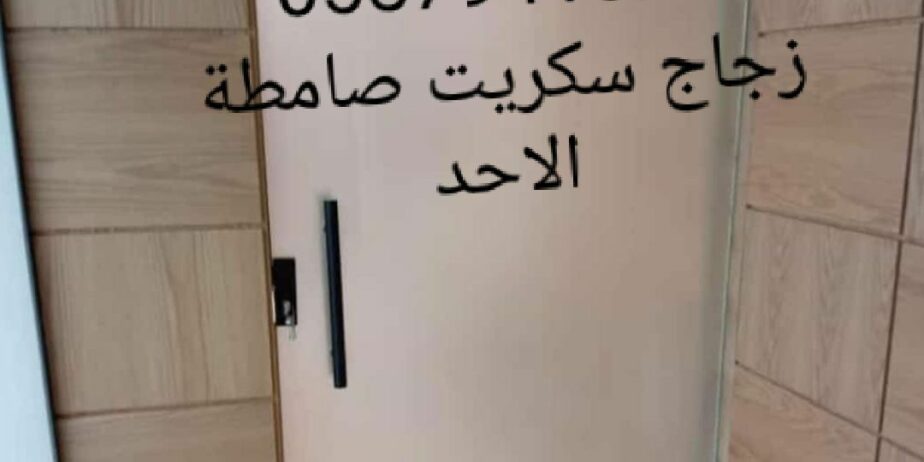 زجاج سكريت صامطة
الاحد